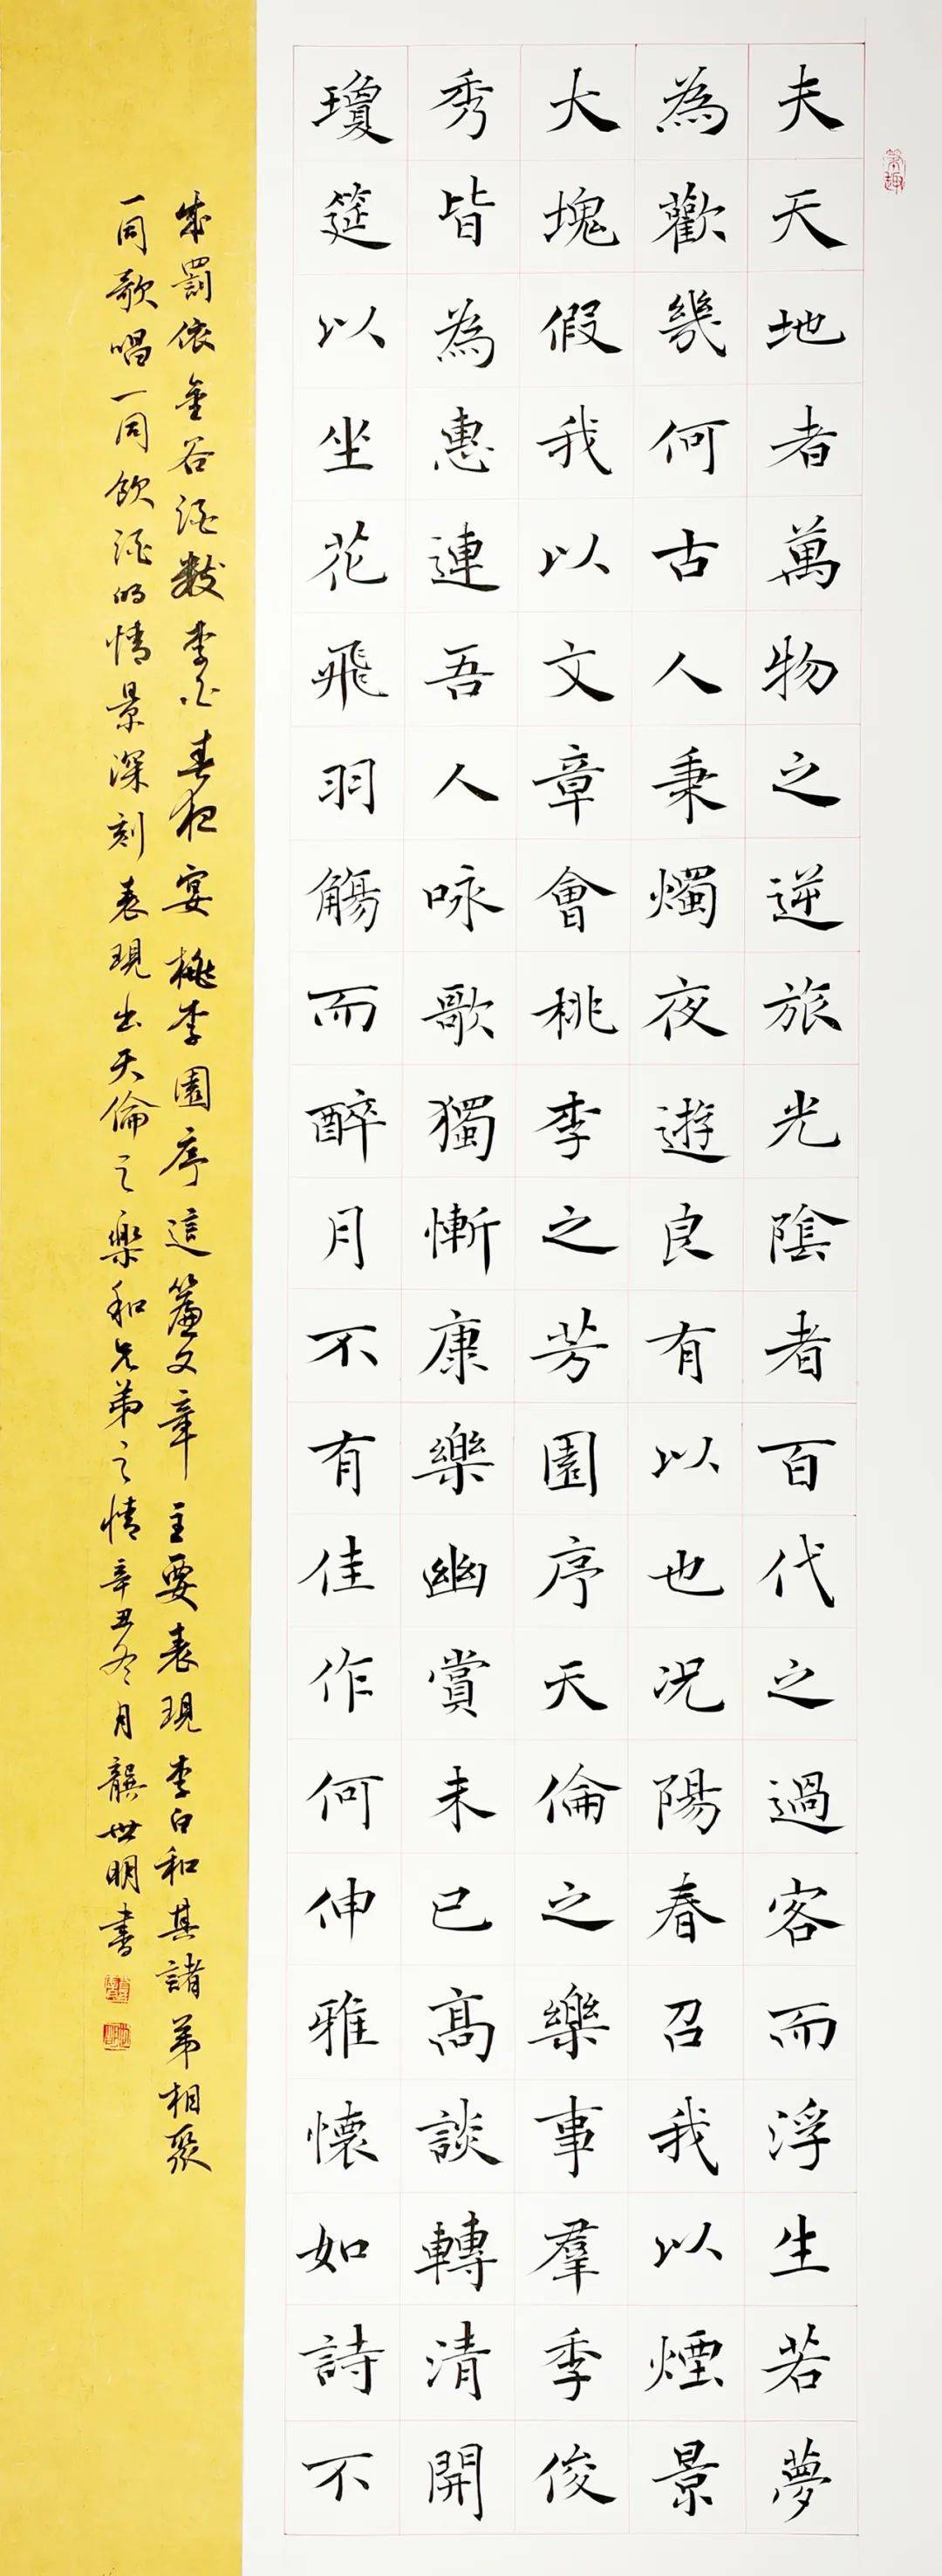 夫天地者萬物之逆旅光陰者百代之過客而浮生若夢
為歡幾何古人秉燭夜遊良有以也况陽春召我以煙景
大塊假我以文章會桃李之芳園序天倫之樂事羣季俊
秀皆為惠連吾人咏歌獨慚康樂幽賞未已高談轉清開
瓊筵以坐花飛羽觴而醉月不有佳作何伸雅懷如詩不
成罰依金谷酒數李白春夜宴桃李園序這篇文章主要表現李白和其諸弟相聚
一同歌唱一同飲酒的情景深刻表現出天倫之樂和兄弟之情辛丑冬月龔世明書